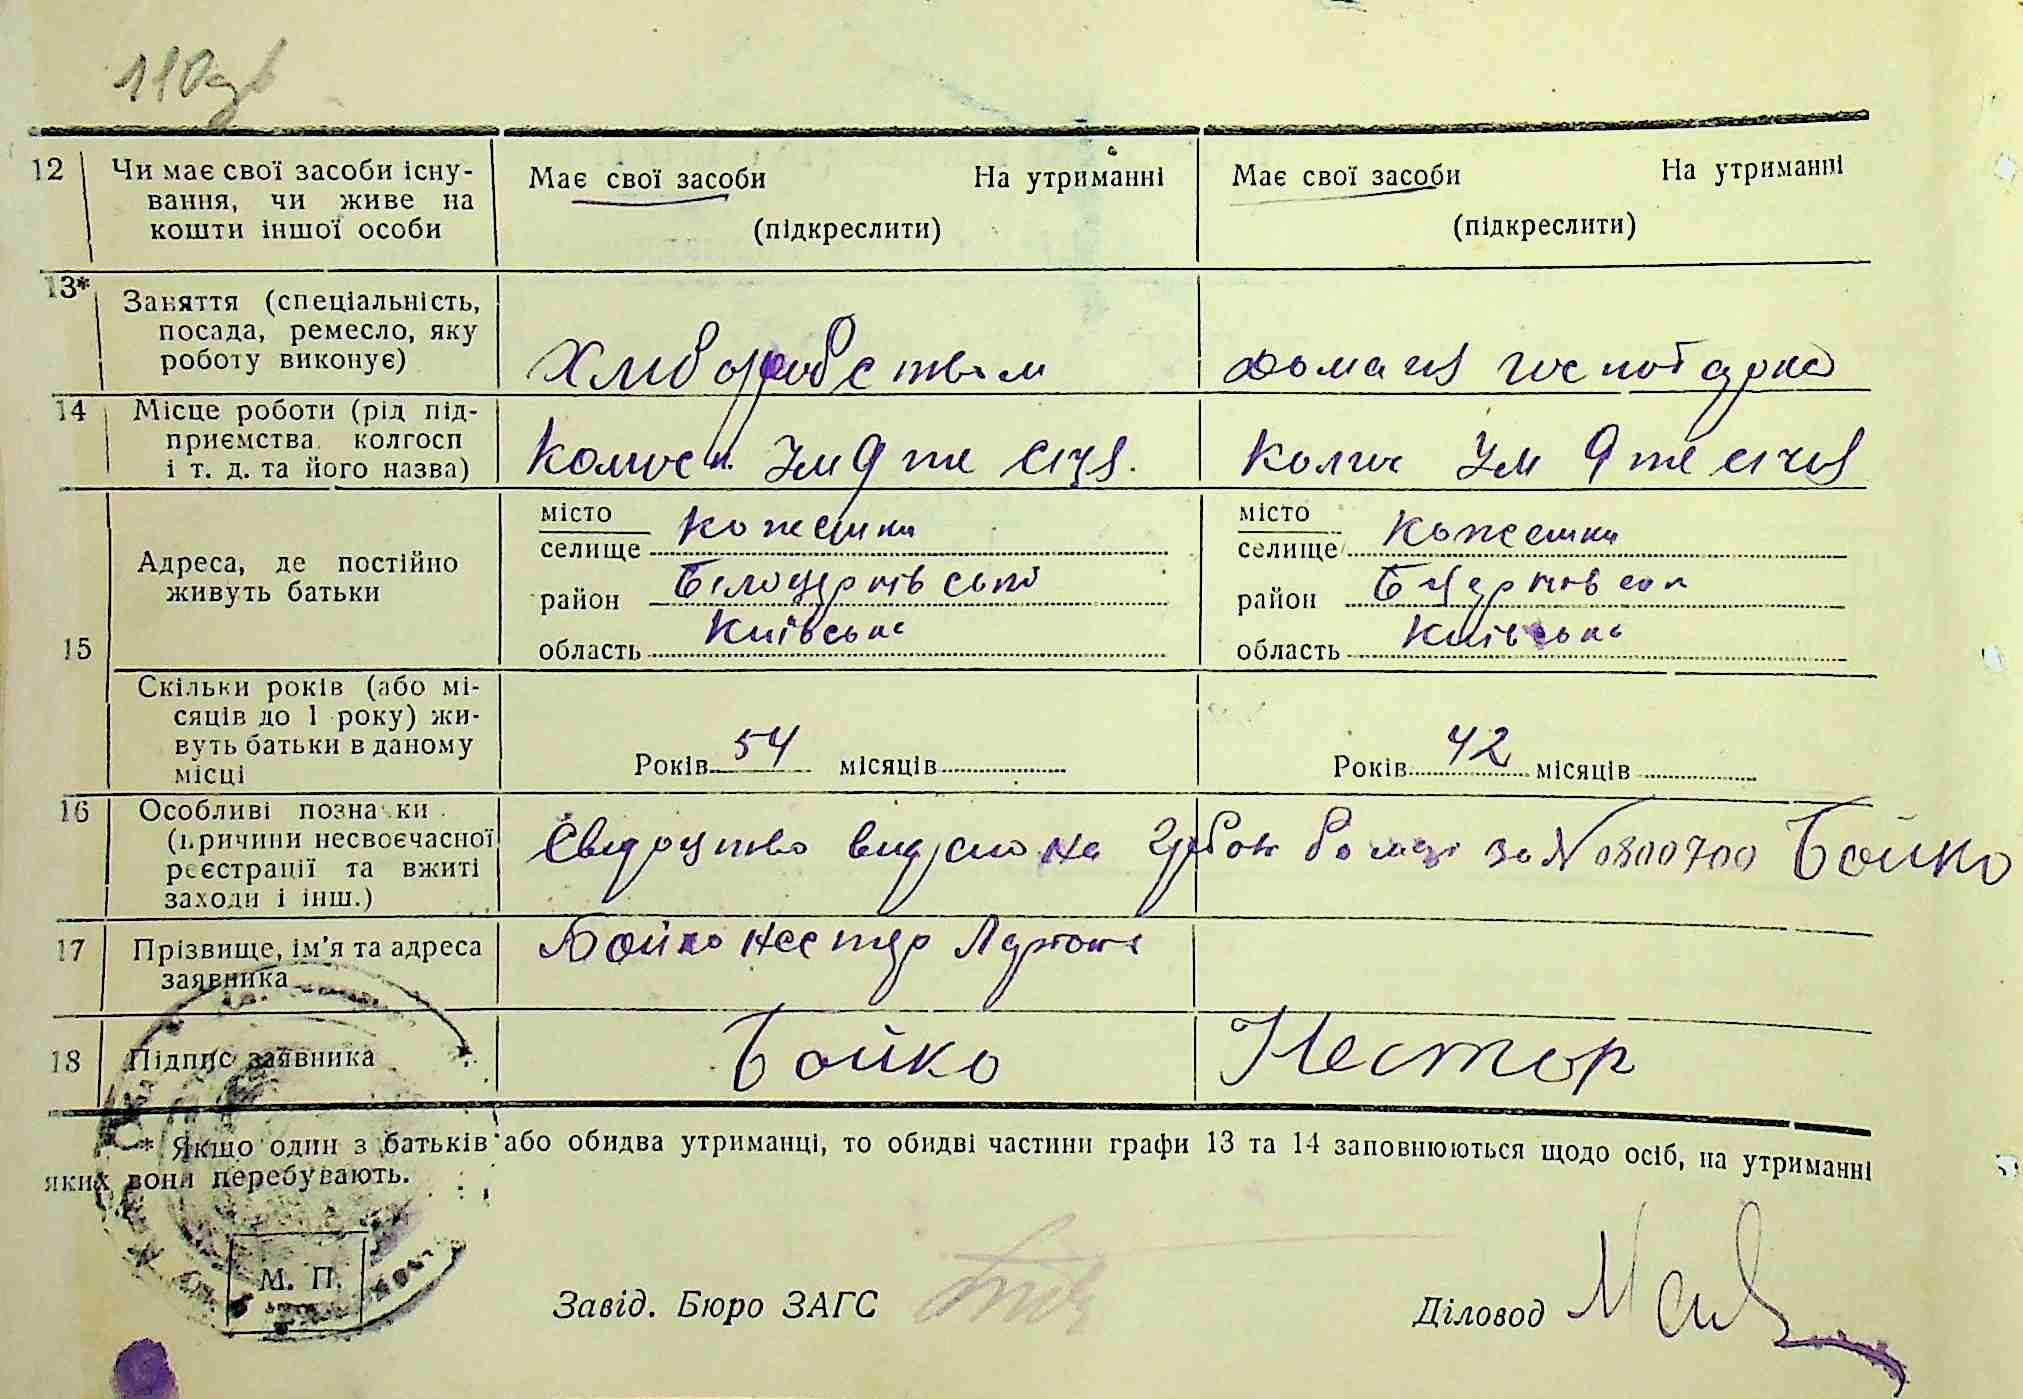 110зв
12 Чи має свої засоби існу-
вання, чи живе на
кошти іншої особи
Має свої засоби На утриманні
(підкреслити)
Має свої засоби На утриманні
(підкреслити)
13* Заняття (спеціальність,
посада, ремесло, яку
роботу виконує)
Хліборобством
домашня господарка
14 Місце роботи (рід під-
приємства, колгосп
і т. д. та його назва)
Колгосп. Ім 9те січя.
Колгос Ім 9те січня
15 Адреса, де постійно
живуть батьки
місто
селище Кожешки
район Білоцерківської
область Київська
місто
селище Кожешки
район Бцерківсог
область Київська
Скільки років (або мі-
сяців до 1 року) жи-
вуть батьки в даному
місці
Років 54 місяців
Років 42 місяців
16 Особливі познаки
(причини несвоєчасної
реєстрації та вжиті
заходи і інш.)
Свідоцтво видано на за №0800700 Бойко
17 Прізвище, ім'я та адреса
заявника
Бойко Нестер
18 Підпис заявника
Бойко Нестор
* Якщо один з батьків або обидва утриманці, то обидві частини графи 13 та 14 заповнюються щодо осіб, на утриманні
яких вони перебувають.
М. П.
Завід. Бюро ЗАГС
Діловод